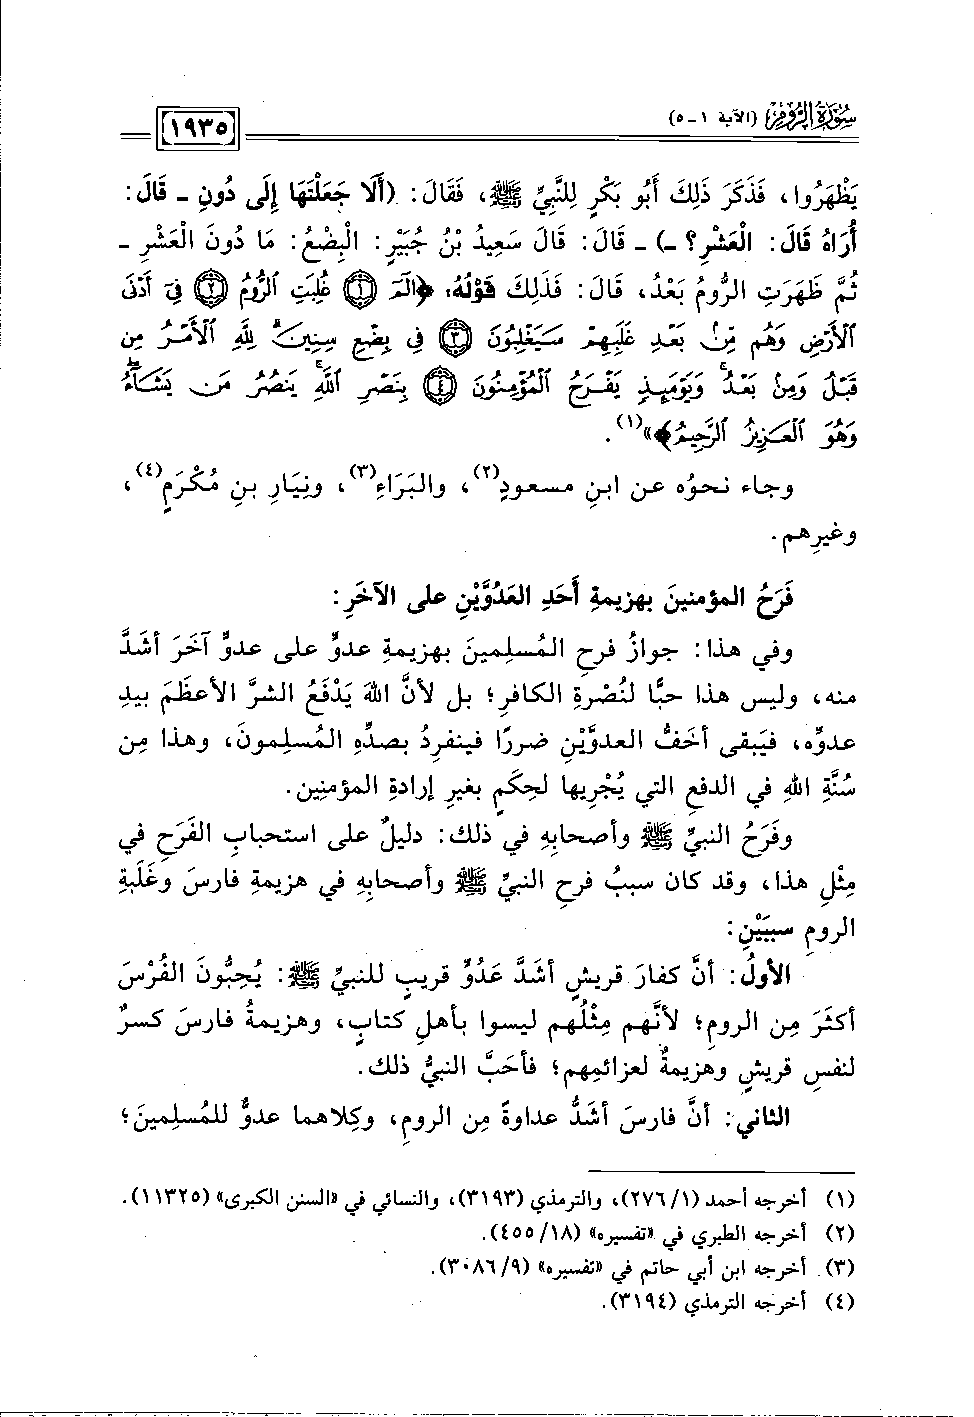 سُورَةُ الرُّومِ (الآية ١ -٥)
١٩٣٥
يَظْهَرُوا، فَذَكَرَ ذَلِكَ أَبُو بَكْرٍ لِلنَّبِيِّ ﷺ، فَقَالَ: (أَلَا جَعَلْتَهَا إِلَى دُونِ - قَالَ:
أُرَاهُ قَالَ: الْعَشْرِ؟ -) - قَالَ: قَالَ سَعِيدُ بْنُ جُبَيْرٍ: الْبِضْعُ: مَا دُونَ الْعَشْرِ -
ثُمَّ ظَهَرَتِ الرُّومُ بَعْدُ، قَالَ: فَذَلِكَ قَوْلُهُ: ﴿الٓمٓ ۝١ غُلِبَتِ ٱلرُّومُ ۝٢ فِىٓ أَدْنَى
ٱلْأَرْضِ وَهُم مِّنۢ بَعْدِ غَلَبِهِمْ سَيَغْلِبُونَ ۝٣ فِى بِضْعِ سِنِينَ ۗ لِلَّهِ ٱلْأَمْرُ مِن
قَبْلُ وَمِنۢ بَعْدُ ۚ وَيَوْمَئِذٍ يَفْرَحُ ٱلْمُؤْمِنُونَ ۝٤ بِنَصْرِ ٱللَّهِ ۚ يَنصُرُ مَن يَشَآءُ ۖ
وَهُوَ ٱلْعَزِيزُ ٱلرَّحِيمُ﴾»(١).
وجاء نحوُه عن ابنِ مسعودٍ(٢)، والبَرَاءِ(٣)، ونِيَارِ بنِ مُكْرَمٍ(٤)،
وغيرِهم.
فَرَحُ المؤمنينَ بهزيمةِ أَحَدِ العَدُوَّيْنِ على الآخَرِ:
وفي هذا: جوازُ فرحِ المُسلِمينَ بهزيمةِ عدوٍّ على عدوٍّ آخَرَ أشَدَّ
منه، وليس هذا حبًّا لنُصْرةِ الكافرِ؛ بل لأنَّ اللهَ يَدْفَعُ الشرَّ الأعظَمَ بيدِ
عدوِّه، فيَبقى أخَفُّ العدوَّيْنِ ضررًا فينفرِدُ بصدِّهِ المُسلِمونَ، وهذا مِن
سُنَّةِ اللهِ في الدفعِ التي يُجْرِيها لحِكَمٍ بغيرِ إرادةِ المؤمنِينَ.
وفَرَحُ النبيِّ ﷺ وأصحابِهِ في ذلك: دليلٌ على استحبابِ الفَرَحِ في
مِثْلِ هذا، وقد كان سببُ فرحِ النبيِّ ﷺ وأصحابِهِ في هزيمةِ فارسَ وغَلَبةِ
الرومِ سببَيْنِ:
الأولُ: أنَّ كفارَ قريشٍ أشَدَّ عَدُوٍّ قريبٍ للنبيِّ ﷺ: يُحِبُّونَ الفُرْسَ
أكثَرَ مِن الرومِ؛ لأنَّهم مِثْلُهم ليسوا بأهلِ كتابٍ، وهزيمةُ فارسَ كسرٌ
لنفسِ قريشٍ وهزيمةٌ لعزائمِهم؛ فأحَبَّ النبيُّ ذلك.
الثاني: أنَّ فارسَ أشَدُّ عداوةً مِن الرومِ، وكِلاهما عدوٌّ للمُسلِمينَ؛
(١) أخرجه أحمد (٢٧٦/١)، والترمذي (٣١٩٣)، والنسائي في «السنن الكبرى» (١١٣٢٥).
(٢) أخرجه الطبري في «تفسيره» (٤٥٥/١٨).
(٣) أخرجه ابن أبي حاتم في «تفسيره» (٣٠٨٦/٩).
(٤) أخرجه الترمذي (٣١٩٤).